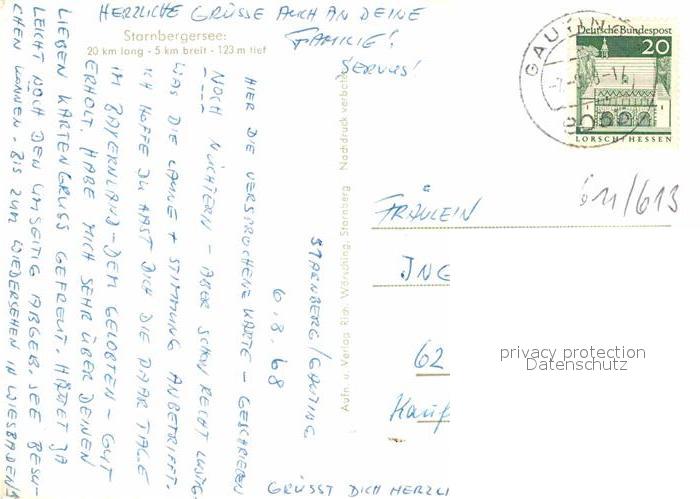 HERZLICHE GRÜSSE AUCH AN DEINE
FAMILIE!
SERVUS!
Starnbergersee:
20 km lang - 5 km breit - 123 m tief
STARNBERG/GAUTING
6.8.68
HIER DIE VERSPROCHENE KARTE - GESCHRIEBEN
NOCH NÜCHTERN - ABER SCHON RECHT LUSTIG.
WAS DIE LAUNE + STIMMUNG ANBETRIFFT.
ICH HOFFE DU HAST DICH DIE PAAR TAGE
IM BAYERNLAND - DEM GELOBTEN - GUT
ERHOLT. HABE MICH SEHR ÜBER DEINEN
LIEBEN KARTENGRUSS GEFREUT. HÄTTET JA
LEICHT NOCH DEN UMSEITIG ABGEB. SEE BESU-
CHEN KÖNNEN - BIS ZUM WIEDERSEHEN IN WIESBADEN
GRÜSST DICH HERZLI
Aufn. u. Verlag Rich. Wörsching, Starnberg Nachdruck verboten
GAUTING
Deutsche Bundespost
20
LORSCH/HESSEN
611/613
FRÄULEIN
ING
62
Kauf
privacy protection
Datenschutz